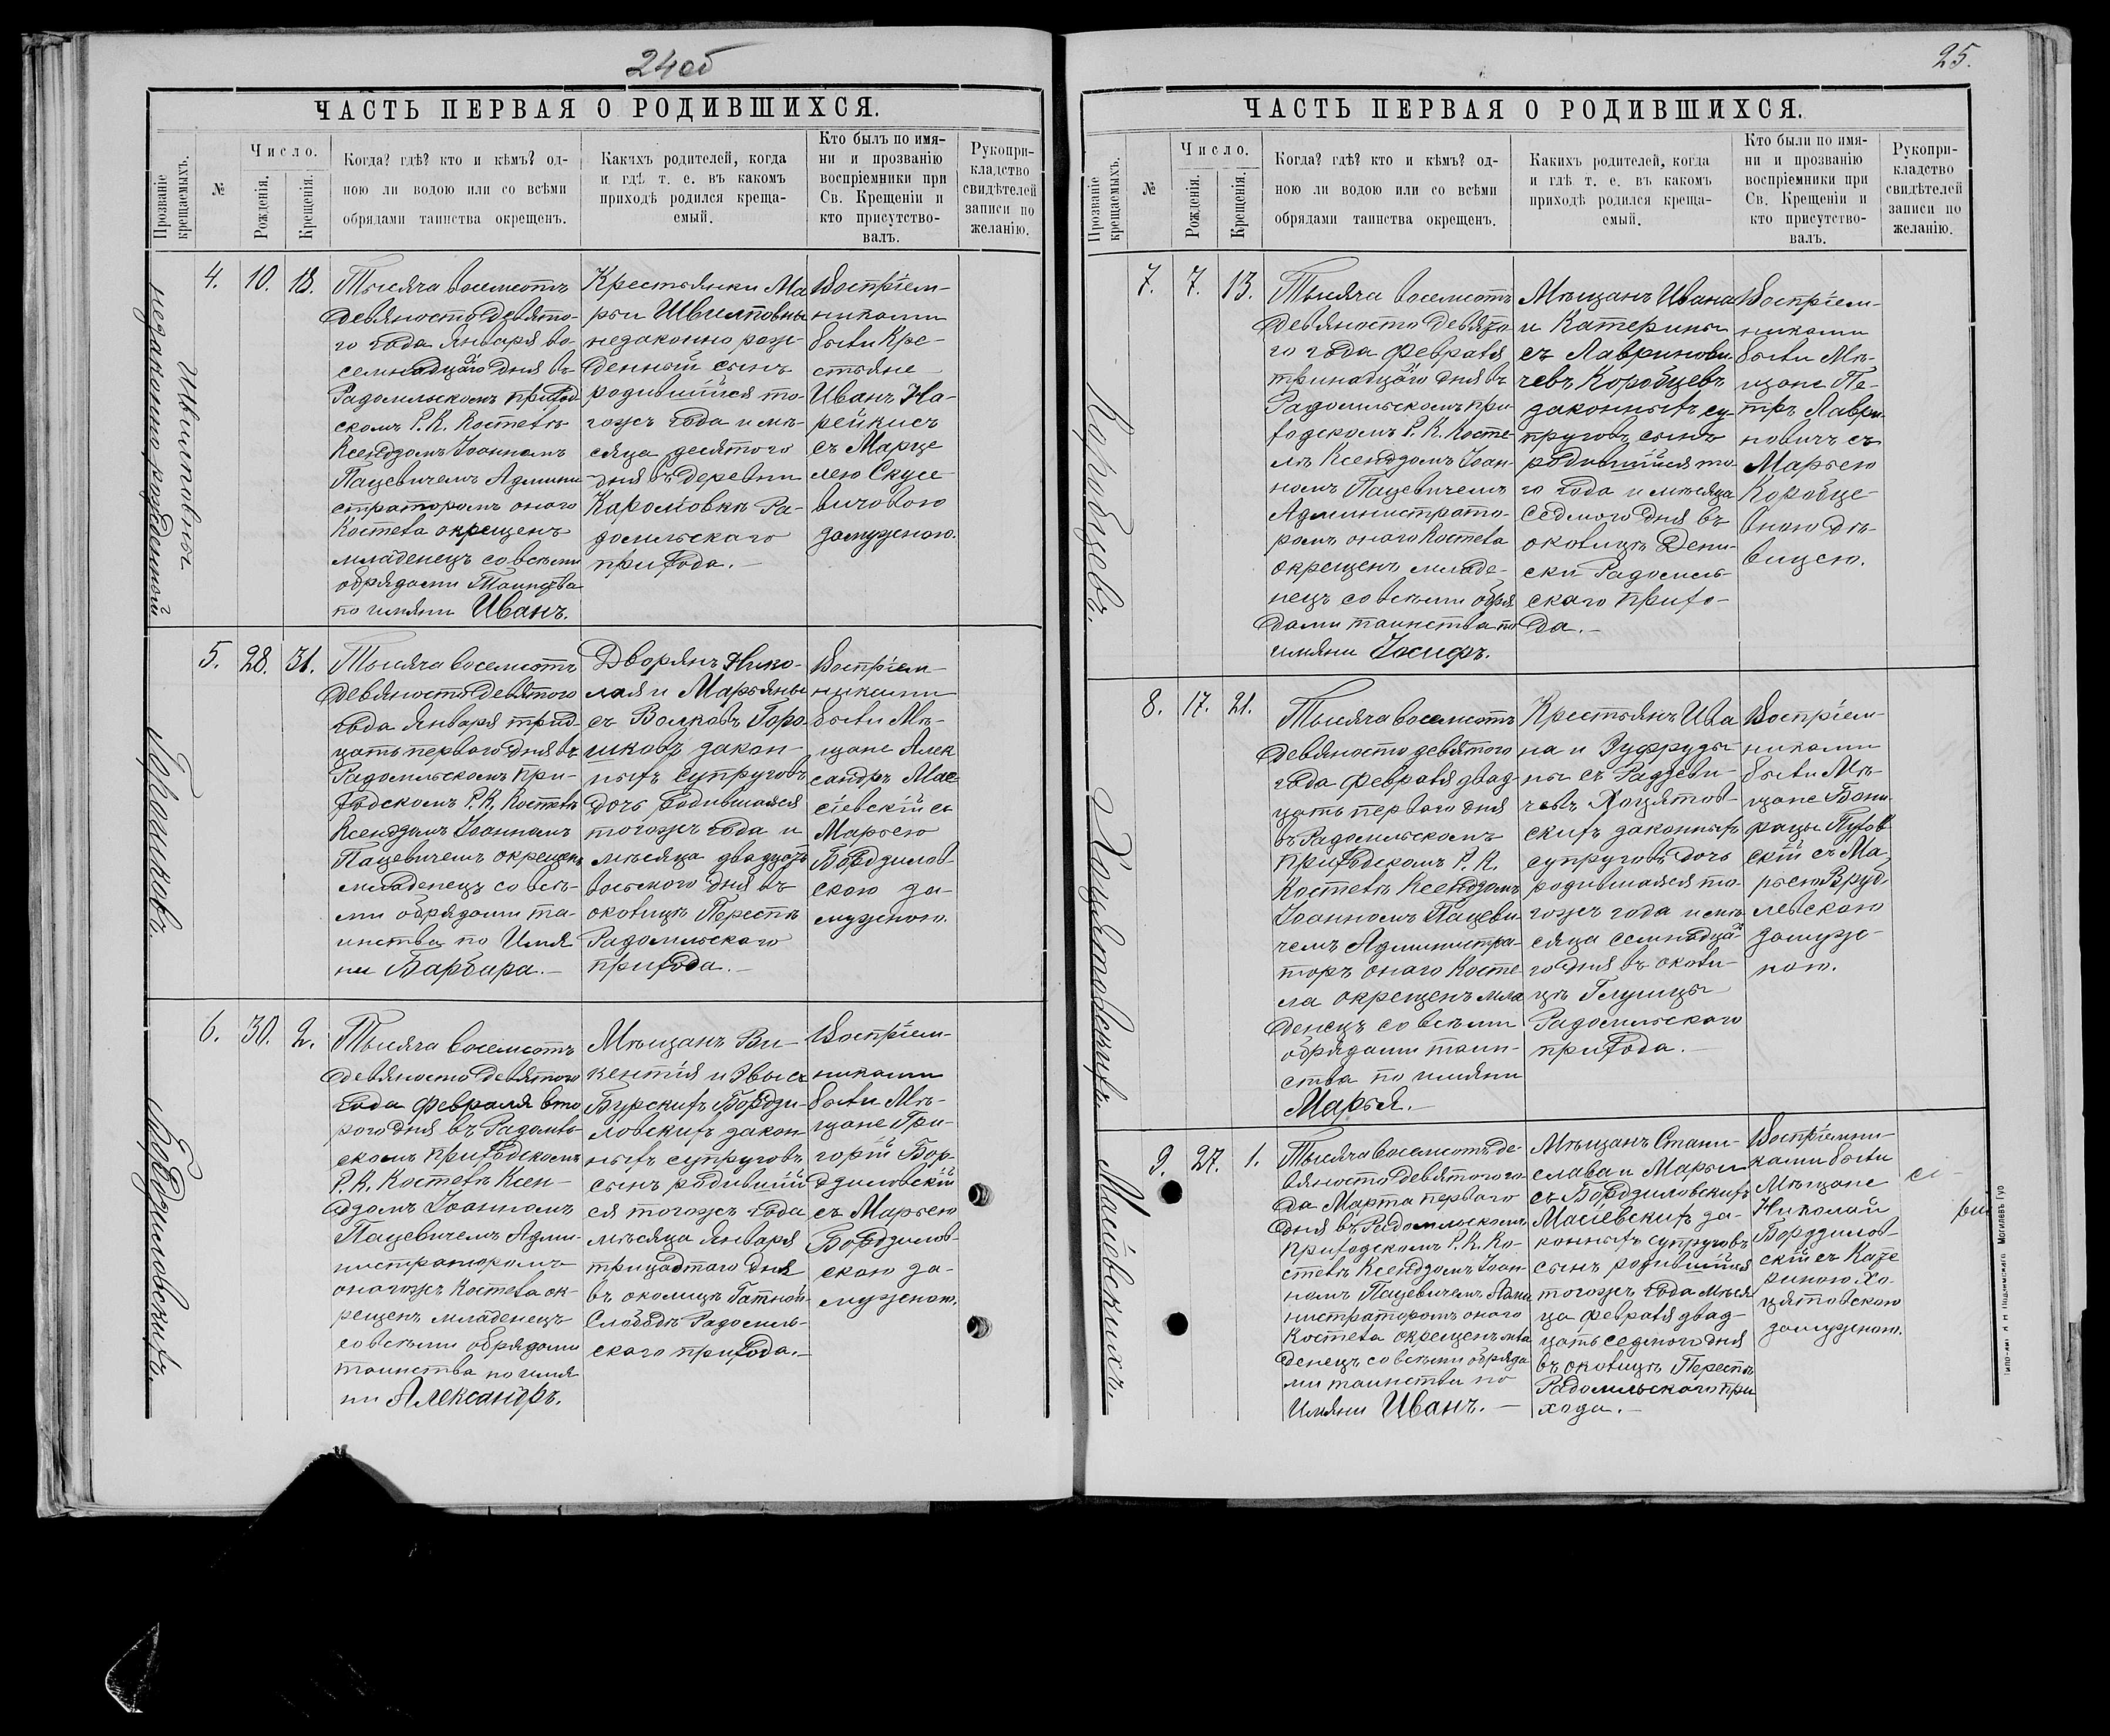 24об
ЧАСТЬ ПЕРВАЯ О РОДИВШИХСЯ.
Прозваніе крещаемыхъ.
№
Число.
Рожденія.
Крещенія.
Когда? гдѣ? кто и кѣмъ? од-
ною ли водою или со всѣми
обрядами таинства окрещенъ.
Какихъ родителей, когда
и гдѣ т. е. въ какомъ
приходѣ родился креща-
емый.
Кто былъ по имя-
ни и прозванію
воспріемники при
Св. Крещеніи и
кто присутство-
валъ.
Рукопри-
кладство
свидѣтелей
записи по
желанію.
Ивилтовны
незаконно рожденный
4. 10. 18.
Тысяча восемсотъ
девяносто девято-
го года Января во-
семнадцатаго дня въ
Радомльскомъ приход-
скомъ Р. К. Костелѣ
Ксендзомъ Іоанномъ
Пацевичемъ Админи-
страторомъ онаго
Костела окрещенъ
младенецъ со всѣми
обрядами Таинства
по имяни Иванъ.
Крестьянки Ма
рьи Ивилтовны
незаконно рож-
денный сынъ
родившійся то-
гожъ года и мѣ-
сяца десятого
дня въ деревни
Кароловкѣ Ра-
домльскаго
прихода.-
Воспріем-
никами
были Кре-
стьяне
Иванъ На-
рейкисъ
съ Марце
лею Скусе
вичовою
замужною.
Горошковъ.
5. 28. 31.
Тысяча восемсотъ
девяносто девятого
года Января трид-
цать первого дня въ
Радомльскомъ при-
ходскомъ Р. К. Костелѣ
Ксендзомъ Іоанномъ
Пацевичемъ окрещенъ
младенецъ со всѣ-
ми обрядами та-
инства по Имя
ни Барбара.-
Дворянъ Нико-
лая и Марьяны
съ Волковъ Горо
шковъ закон-
ныхъ супруговъ
дочь родившаяся
тогожъ года и
мѣсяца двадцать
восьмого дня въ
околицѣ Переспѣ
Радомльскаго
прихода.-
Воспріем-
никами
были Мѣ-
щане Алек
сандръ Мас
сіевскій съ
Марьею
Бордзилов-
скою за-
мужною.
Бордзиловскихъ.
6. 30. 2.
Тысяча восемсотъ
девяносто девятого
года Февраля вто
рого дня въ Радомль-
скомъ приходскомъ
Р. К. Костелѣ Ксен-
дзомъ Іоанномъ
Пацевичемъ Адми-
нистраторомъ
оногожъ Костела ок-
рещенъ младенецъ
со всѣми обрядами
таинства по имя
ни Александръ.
Мѣщанъ Ви-
кентія и Эвы съ
Бурскихъ Бордзи-
ловскихъ закон
ныхъ супруговъ
сынъ родившій
ся тогожъ года
мѣсяца Января
трицадтаго дня
въ околицѣ Гатной
Слободѣ Радомль-
скаго прихода.-
Воспріем-
никами
были Мѣ-
щане Гри-
горій Бор-
дзиловскій
съ Марьею
Бордзилов-
скою за-
мужною.
25.
ЧАСТЬ ПЕРВАЯ О РОДИВШИХСЯ.
Прозваніе крещаемыхъ.
№
Число.
Рожденія.
Крещенія.
Когда? гдѣ? кто и кѣмъ? од-
ною ли водою или со всѣми
обрядами таинства окрещенъ.
Какихъ родителей, когда
и гдѣ т. е. въ какомъ
приходѣ родился креща-
емый.
Кто были по имя-
ни и прозванію
воспріемники при
Св. Крещеніи и
кто присутство-
валъ.
Рукопри-
кладство
свидѣтелей
записи по
желанію.
Коробцевъ.
7. 7. 13.
Тысяча восемсотъ
девяносто девято
го года Февраля
тринадцатаго дня въ
Радомльскомъ при
ходскомъ Р. К. Косте-
лѣ Ксендзомъ Іоан-
номъ Пацевичемъ
Администрато-
ромъ онаго Костела
окрещенъ младе-
нецъ со всѣми обря
дами таинства по
имяни Іосифъ.
Мѣщанъ Ивана
и Катерины
съ Лавринови-
чевъ Коробцевъ
законныхъ су-
пруговъ сынъ
родившійся то-
го года и мѣсяца
седмого дня въ
околицѣ Дени-
ски Радомль-
скаго прихо-
да.-
Воспріем-
никами
были Мѣ-
щане Пе-
тръ Лаври-
новичъ съ
Марьею
Коробце-
вною дѣ-
вицею.
Хоцятовскихъ
8. 17. 21.
Тысяча восемсотъ
девяносто девятого
года Февраля двад-
цать первого дня
въ Радомльскомъ
приходскомъ Р. К.
Костелѣ Ксендзомъ
Іоанномъ Пацеви-
чемъ Администра-
торъ онаго Косте-
ла окрещенъ мла
денецъ со всѣми
обрядами таин-
ства по имяни
Марья.-
Крестьянъ Ива
на и Зуфруды-
ны съ Радзеви-
чевъ Хоцятов-
скихъ законныхъ
супруговъ дочь
родившаяся то-
гожъ года и мѣ-
сяца семнадца-
го дня въ околи-
цѣ Глушцы
Радомльскаго
прихода.-
Воспріем-
никами
были Мѣ-
щане Бони-
фацы Пухов
скій съ Ма-
рьею Вруб-
левскою
замуж-
ною.
Масіевскихъ.
9. 27. 1.
Тысяча восемсотъ де-
вяносто девятого го-
да Марта первого
дня въ Радомльскомъ
приходскомъ Р. К. Ко-
стелѣ Ксендзомъ Іоан-
номъ Пацевичемъ Адми
нистраторомъ онаго
Костела окрещенъ мла
денецъ со всѣми обряда
ми таинства по
Имяни Иванъ.-
Мѣщанъ Стани-
слава и Марьи
съ Бордзиловскихъ
Масіевскихъ за-
конныхъ супруговъ
сынъ родившійся
тогожъ года мѣся
ца Февраля двад-
цать седмого дня
въ околицѣ Переспѣ
Радомльскаго при
хода.-
Воспріемни-
ками были
Мѣщане
Николай
Бордзилов-
скій съ Кате
риною Хо-
цятовскою
замужною.